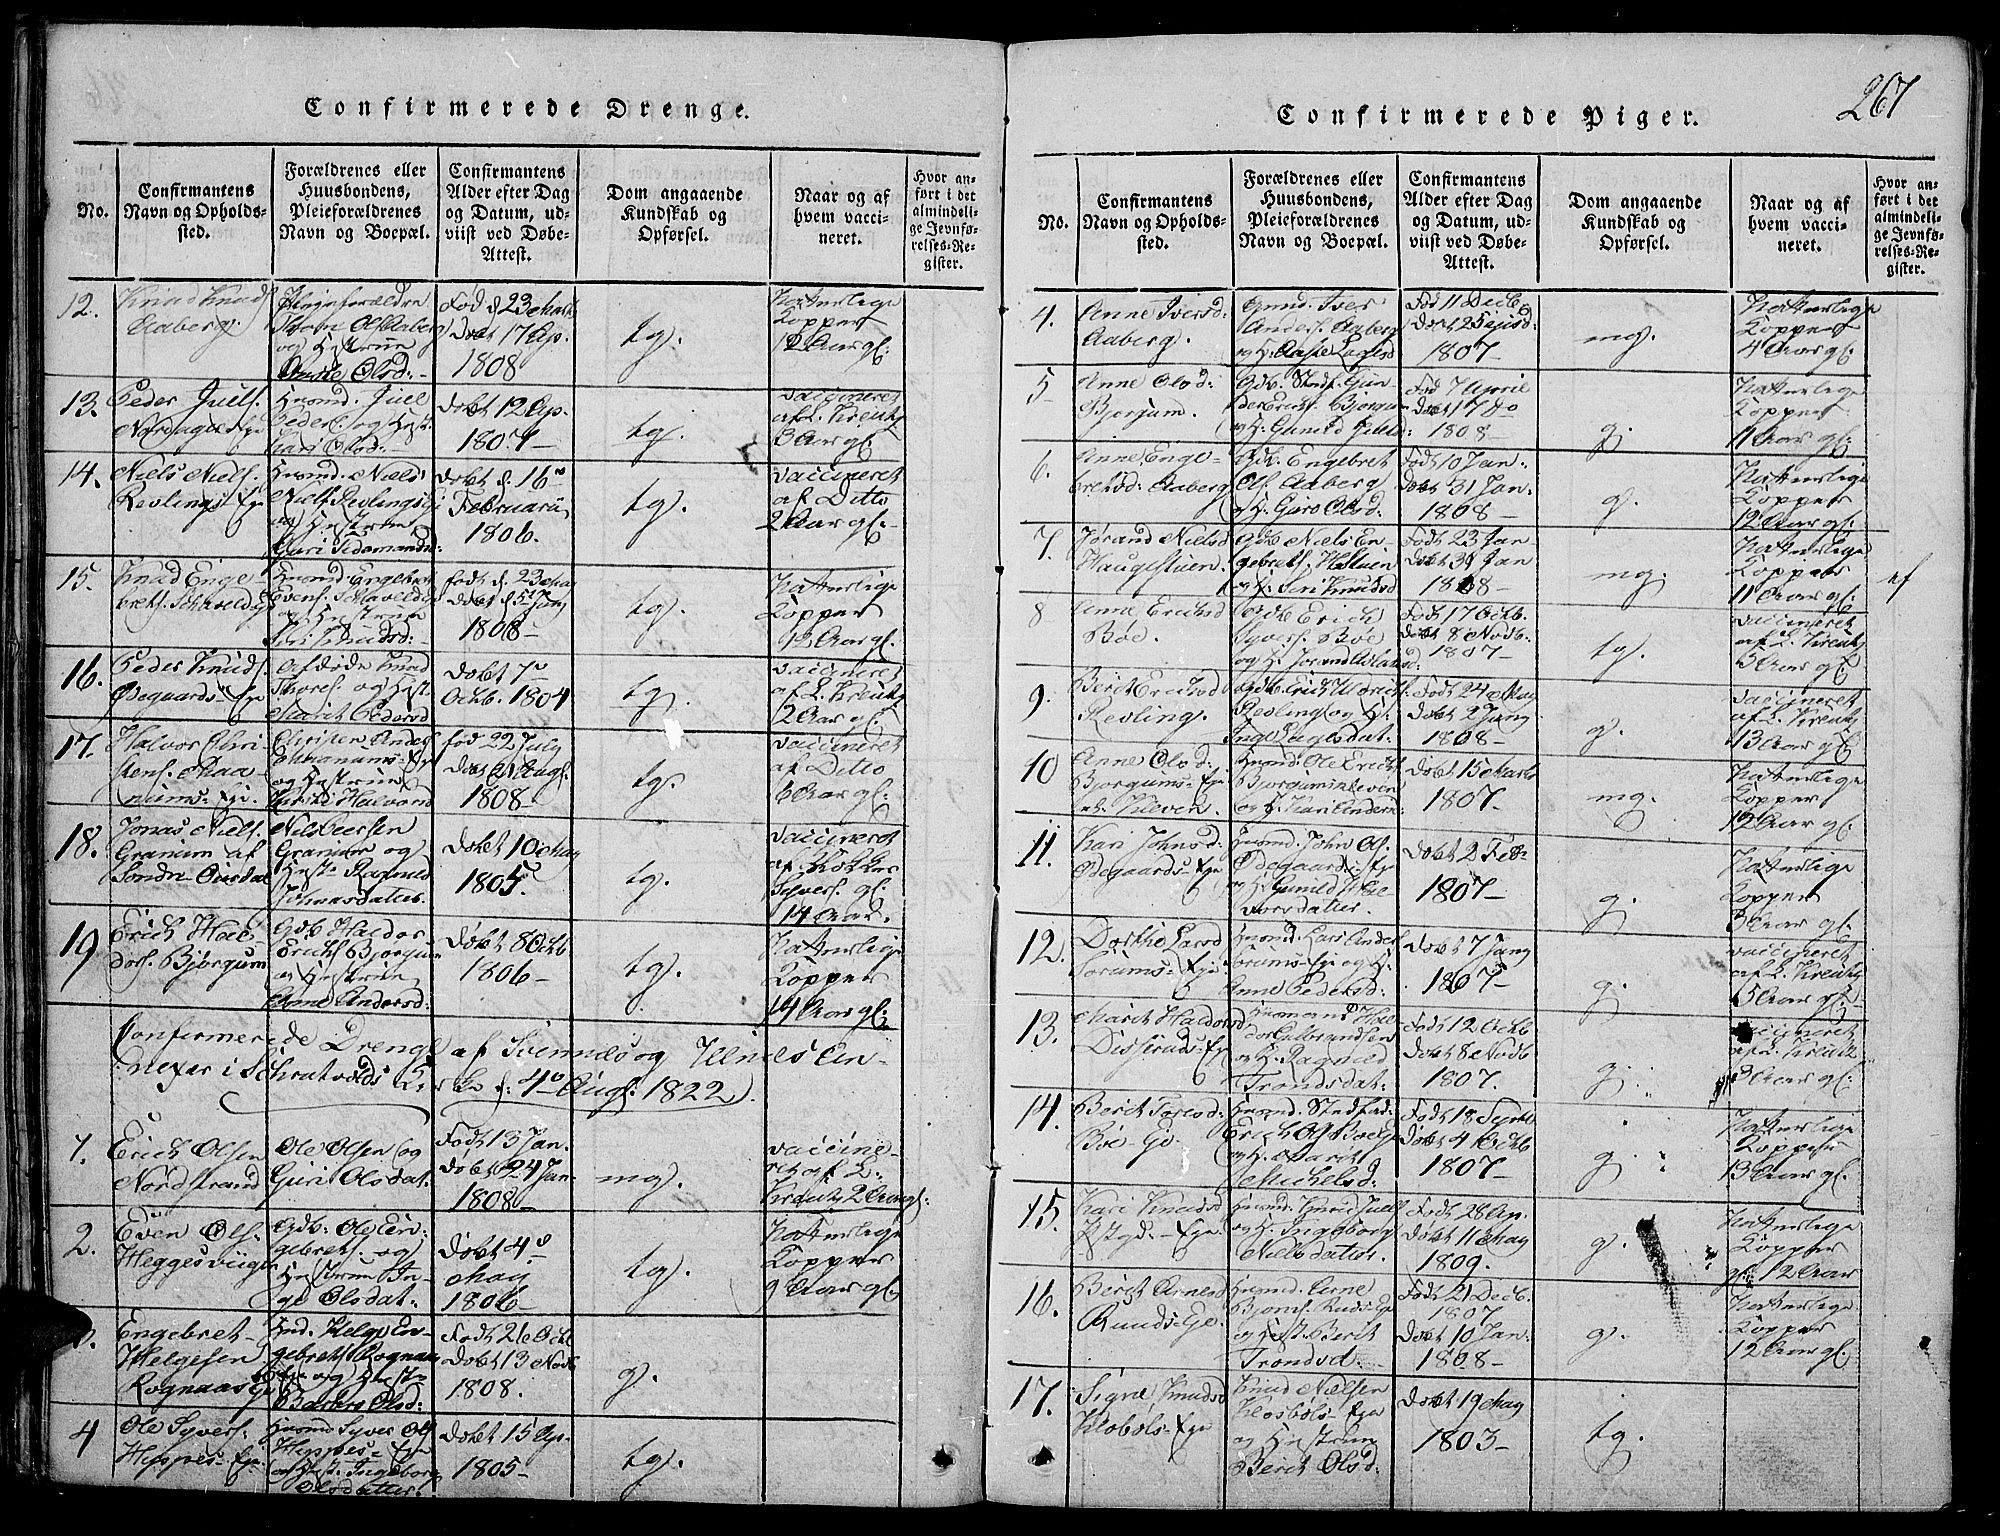 Confirmerede Drenge.
No.
Confirmantens
Navn og Opholds-
sted.
Forældrenes eller
Huusbondens,
Pleieforældrenes
Navn og Boepæl.
Confirmantens
Alder efter Dag
og Datum, ud-
viist ved Døbe-
Attest.
Dom angaaende
Kundskab og
Opførsel.
Naar og af
hvem vacci-
neret.
Hvor an-
ført i det
almindeli-
ge Jevnfø-
relses-Re-
gister.
12.
Knud Knuds.
Aaberg.
Plejeforældre
Ols. Aaberg
og Hustrue
Olsd:
Fød d. 23 Mart
Døbt 17 Ap.
1808
tg.
Naturlige
Kopper
12 Aar gl:
13.
Peder Juels.
Huusmd. Juel
Peders. og Hust.
Kari Olsd:
Døbt 12 Ap.
1807
tg.
vaccineret
af L. Kreutz
3 Aar gl:
14.
Niels Niels.
Revlings Eje
Huusmd. Niels
Niels. Revlings Ej
og Hustrue
Guri
Døbt d. 16
Februarii
1806.
tg.
vaccineret
af Ditto
2 Aar gl:
15.
Knud Enge-
brets.
Huusmd. Engebret
Evens.
og Hustrue
Siri Knudsd:
født d. 23 May
døbt d. 5 Juny
1808
tg.
Naturlige
Kopper
12 Aar gl:
16.
Peder Knuds.
Ødegaards Eje
Afdøde Knud
Thores. og Hust.
Marit Pedersd
Døbt 7
Octb. 1804
tg.
vaccineret
af L. Kreutz
2 Aar gl:
17.
Halvor Chri-
stens.
nums Eje.
Christen Anders
og Hustrue
Halvorsd
fød 22 July
Døbt 21 Aug.
1808
tg.
vaccineret
af Ditto
6 Aar gl:
18.
Jonas Niels.
Granum af
Søndre Aurdal
Nils
Granum og
Hust. Ragnild
Johnasdatter.
Døbt 10 May
1805
tg.
vaccineret
af Klokker
Syvers. gl:
14 Aar.
19
Erich Hal-
dors. Bjørgum
Gdb. Haldor
Erichs. Bjørgum
og Hustrue
Anne Andersd:
Døbt 8 Octb
1806
tg.
Naturlige
Kopper
14 Aar gl:
Confirmerede Drenge af Svennæs og Ulnæs An-
nexer i Schrutvolds Kirke d: 4 Aug: 1822.
1.
Erich Olsen
Nordstrand
Ole Olsen og
Guri Olsdat.
Født 13 Jan.
døbt 24 Jan.
1808
mg.
vaccine-
ret af L.
Kreutz 2 Aar gl:
2.
Even Ols.
Heggesviigen
Gdb. Ole En-
gebrets. og
Hustrue In-
ge Olsdat.
Døbt 4
May
1806
tg.
Naturlige
Kopper
9 Aar gl:
Engebret
Helgesen
Rognaas Eje
Hmd. Helge En-
gebrets. Rognaas
Eje og Hust.
Barbro Olsd:
Født 21 Oct
Døbt 13 Novb
1808.
g.
4
Ole Syvers.
Heppes Eje
Huusmd Syver Ols
Heppes Eje
og Hust. Ingeborg
Olsdatter.
Døbt 15 Ap.
1805
tg.
267
Confirmerede Piger.
No.
Confirmantens
Navn og Opholds-
sted.
Forældrenes eller
Huusbondens,
Pleieforældrenes
Navn og Boepæl.
Confirmantens
Alder efter Dag
og Datum, ud-
viist ved Døbe-
Attest.
Dom angaaende
Kundskab og
Opførsel.
Naar og af
hvem vacci-
neret.
Hvor an-
ført i det
almindeli-
ge Jevnfø-
relses-Re-
gister.
4.
Anne Iversd:
Aaberg.
Iver
Anders. Aaberg
og H.
Fød 11 Decb.
Døbt 25
1807
mg.
Naturlige
Kopper
4 Aar gl:
5
Anne Olsd:
Bjørgum.
Bjørgum
og H. Gunild
Fød 7 April
Døbt 17 do
1808
g.
Naturlige
Kopper
11 Aar gl:
6.
Anne Enge-
bretsd: Aaberg
Gdb. Engebret
Ols. Aaberg
og H. Guro Olsd:
Født 10 Jan.
Døbt 31 Jan.
1808
g.
Naturlige
Kopper
12 Aar gl:
7.
Jørand Nielsd
Haugestuen
Gdb. Niels En-
gebrets.
og H. Siri Knudsd
Født 23 Jan
Døbt 31 Jan
1808
mg.
Naturlige
Kopper
11 Aar gl:
af
8
Anne Erichsd
Bøe.
Gdb Erich
Syvers. Bøe
og H. Jorand Aslaksd
Født 17 Octb.
Døbt 8 Novb.
1807
tg.
vaccineret
af L. Kreutz
5 Aar gl:
9.
Berit Erichsd
Revling.
Gdb. Erich
Revling og H.
Inge
Født 24 May
Døbt 2 Juny
1808
g.
vaccineret
af L. Kreutz
13 Aar gl:
10
Anne Olsd:
Bjørgums Eje
Huusmd. Ole Erichs
Bjørgums
og H. Kari
Døbt 15 Marts
1807
mg.
Naturlige
Kopper
12 Aar gl:
11.
Kari Johnsd:
Ødegaards Eje
Huusmd. John Ols.
Ødegaards Eje
og H. Gunild Hal-
vorsdatter.
Døbt 2 Feb.
1807
g.
Naturlige
Kopper
3 Aar gl:
12.
Dorthe Larsd
Sørums Eje
Huusmd. Lars Anders
Sørums Eje og H.
Anne Pedersd:
Døbt 7 Juny
1807
g.
vaccineret
af L. Kreutz
5 Aar gl:
13.
Marit Haldorsd
Disseruds Eje
Huusmand Hal-
dor Gulbrandsen
og H. Ragnild
Trondsdat:
Født 12 Octb
Døbt 8 Novb
1807.
g.
vaccineret
af L. Kreutz
3 Aar gl:
14.
Berit
Bøe Eje
Huusmd.
Erich Ols. Bøe
og H. Marit
Michelsd:
Født 18 Septb
Døbt 4 Octb
1807
g.
Naturlige
Kopper
13 Aar gl:
15.
Kari Knudsd
Eje
Huusmd. Knud Juels
og H. Ingeborg
Nielsdatter.
Født 28 Ap.
Døbt 11 May
1809.
g.
Naturlige
Kopper
gl: 12 Aar
16.
Berit Arnesd
Ruuds Eje
Huusmd. Arne
Bjørns. Ruds Eje
og Hust. Berit
Trondsd.
Født 21 Decb.
1807
Døbt 10 Jan.
1808
g.
Naturlige
Kopper
12 Aar gl:
17.
Signe Knudsd
Klosbøls Eje
Knud Nielsen
Klosbøls Eje
og Hustrue
Berit Olsd:
Døbt 19 May
1803
tg.